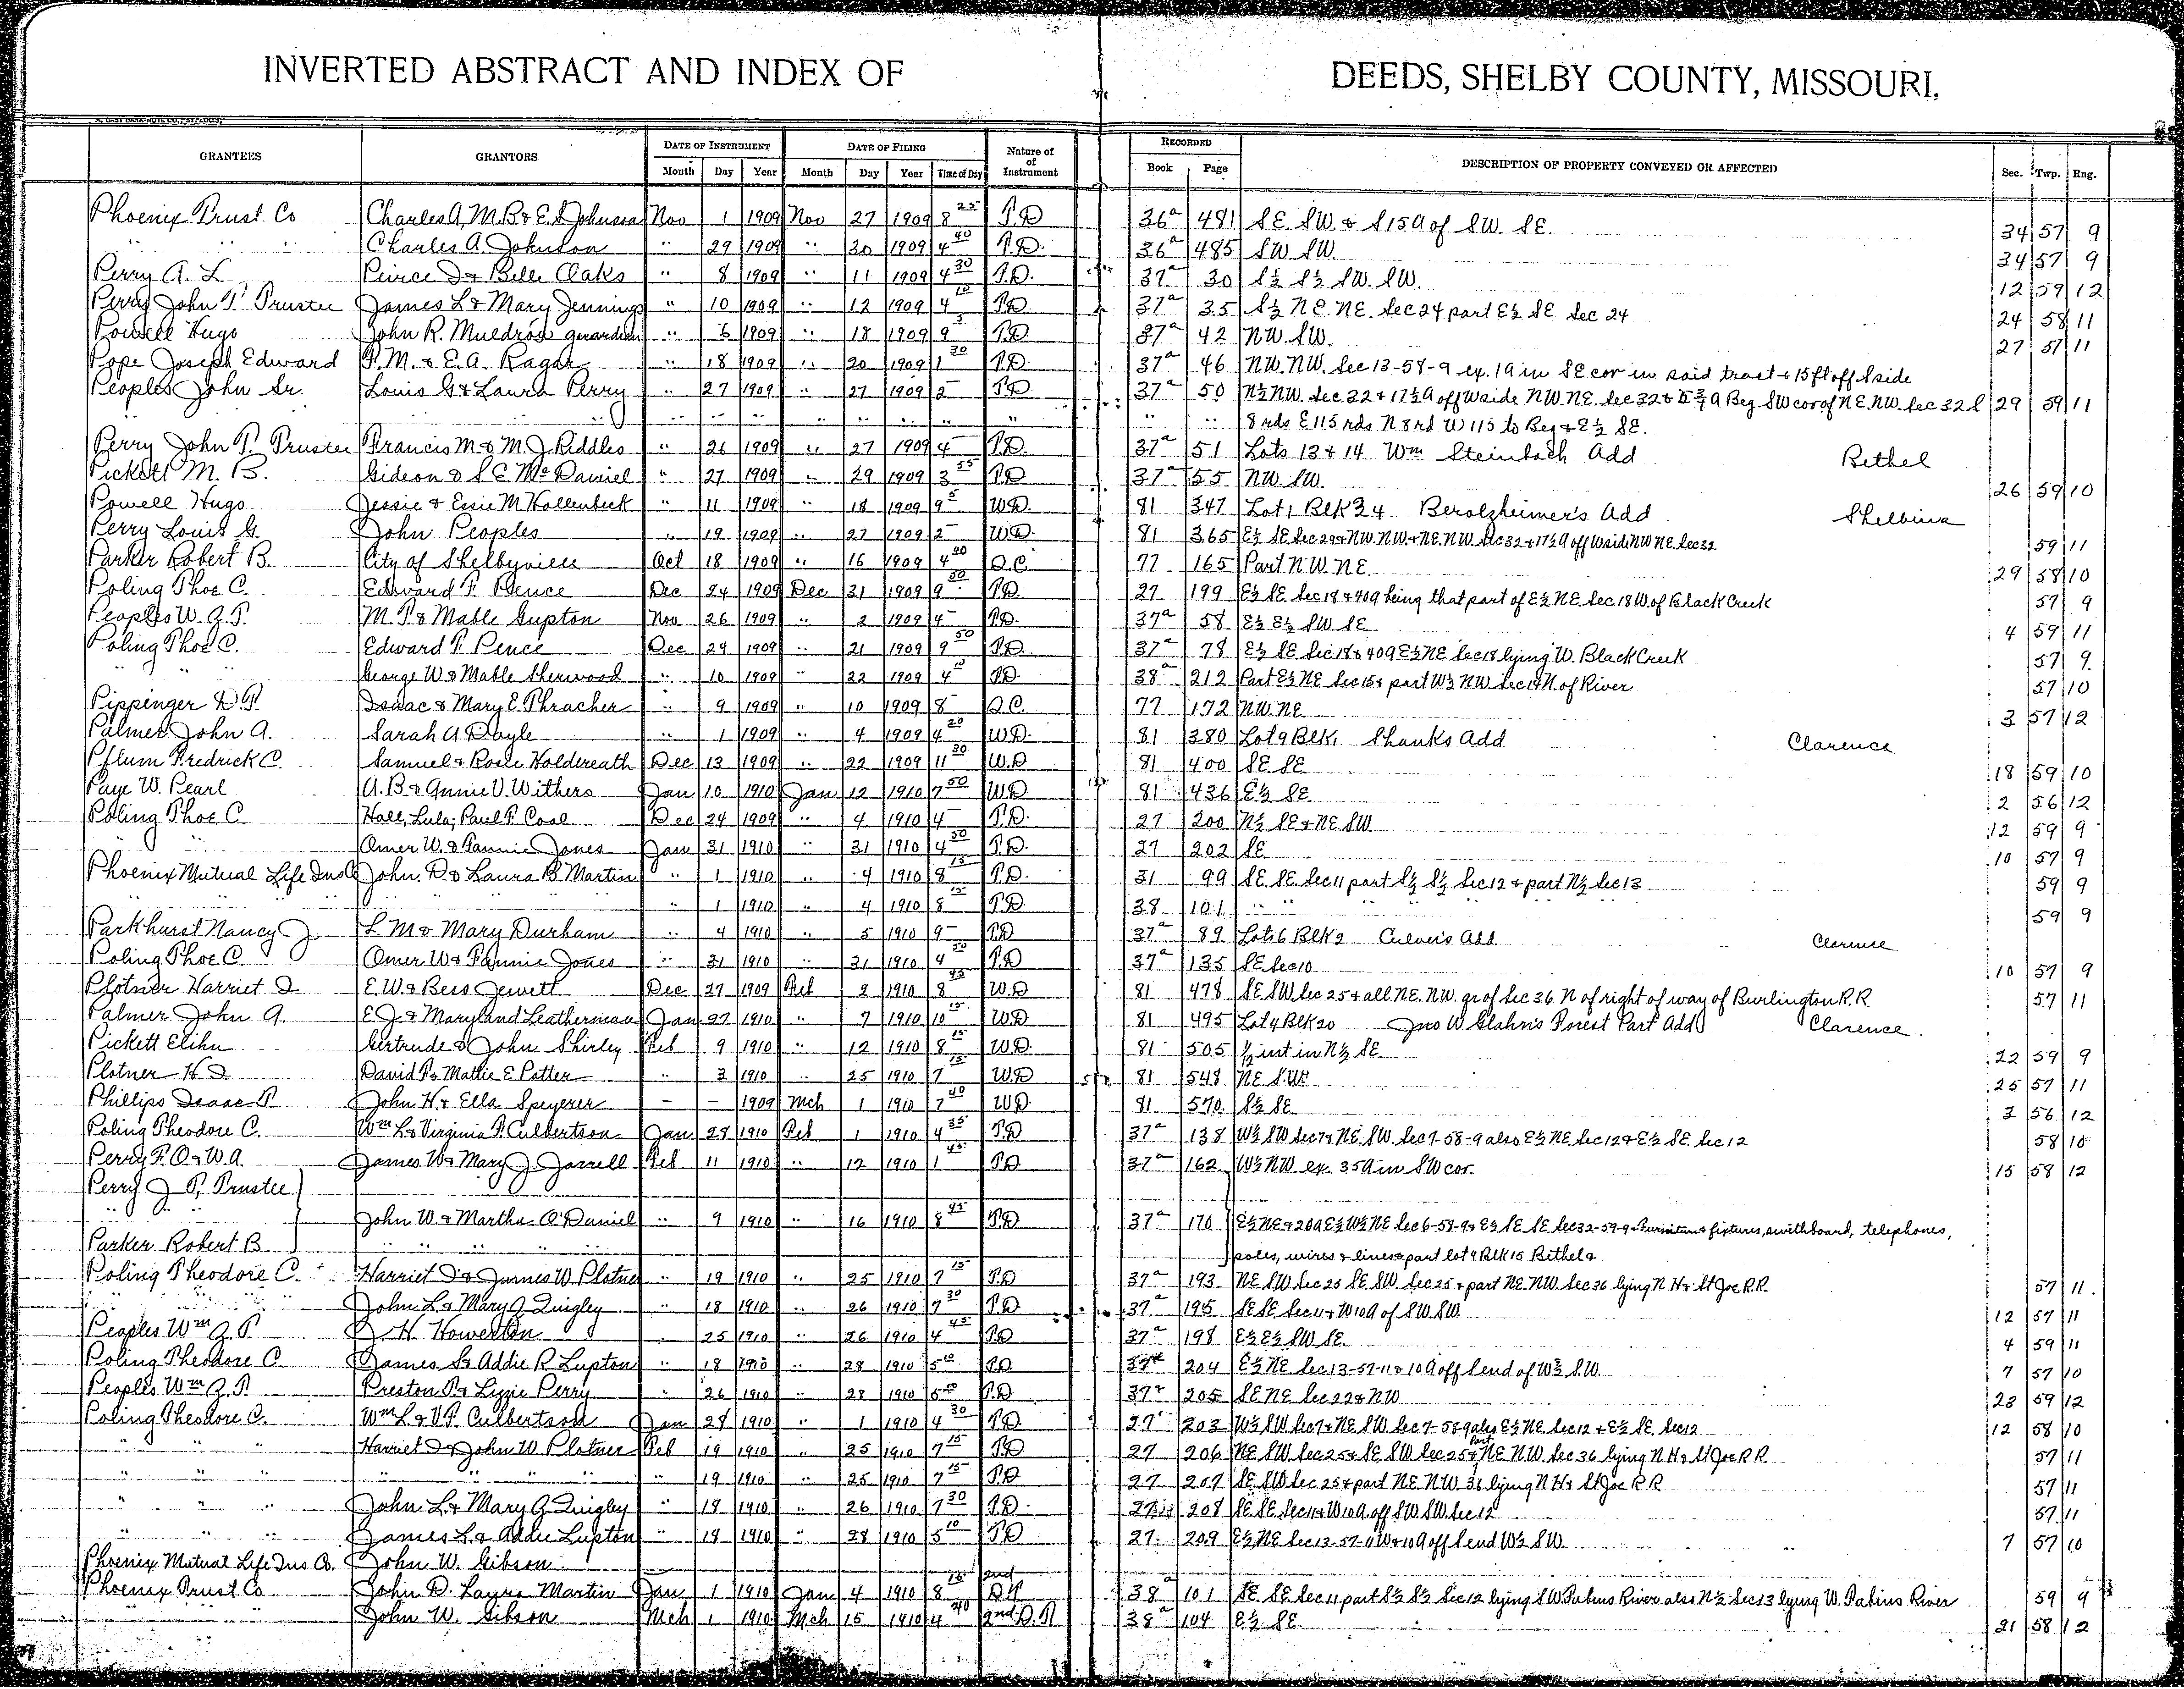 INVERTED ABSTRACT AND INDEX OF DEEDS, SHELBY COUNTY, MISSOURI.
GRANTEES GRANTORS DATE OF INSTRUMENT DATE OF FILING Nature of of Instrument RECORDED DESCRIPTION OF PROPERTY CONVEYED OR AFFECTED Sec. Twp. Rng.
Month Day Year Month Day Year Time of Day Book Page
Phoenix Trust Co Charles A, M.B & E. Johnson Nov 1 1909 Nov 27 1909 8 25 T.D 36a 481 S.E. S.W. & S15A of S.W. S.E. 34 57 9
" " " Charles A. Johnson " 29 1909 " 30 1909 4 40 T.D. 36a 485 SW SW. 34 57 9
Perry A. L. Peirce D & Belle Oaks " 8 1909 " 11 1909 4 30 T.D. 37a 30 S½ S½ S.W. S.W. 12 59 12
Perry John T. Trustee James L & Mary Jennings " 10 1909 " 12 1909 4 10 T.D 37a 35 S½ N.E. N.E. Sec 24 part E½ S.E. Sec 24 24 58 11
Powell Hugo John R. Muldrow guardian " 6 1909 " 18 1909 9 5 T.D 37a 42 N.W. S.W. 27 57 11
Pope Joseph Edward F. M. & E. A. Ragar " 18 1909 " 20 1909 1 30 T.D. 37a 46 N.W. N.W. Sec 13-58-9 ex. 1A in S.E cor in said tract & 15 ft off S side
Peoples John Sr. Louis G & Laura Perry " 27 1909 " 27 1909 2 T.D 37a 50 N½ NW. Sec 32 & 17½ A off W side N.W. N.E. Sec 32 & A Beg. SW cor of N.E. N.W. Sec 32 S 29 59 11
" " " " " " " " " 8 rds E 115 rds. N 8 rd W 115 to Beg & E½ SE.
Perry John T. Trustee Francis M & M. J. Riddles " 26 1909 " 27 1909 4 T.D. 37a 51 Lots 13 & 14 Wm Steinbach Add Bethel
Pickett M. B. Gideon & S. E. McDaniel " 27 1909 " 29 1909 3 55 T.D 37a 55 N.W. S.W. 26 59 10
Powell Hugo Jessie & Essie M Hollenbeck " 11 1909 " 18 1909 9 5 W.D. 81 347 Lot 1 Blk 34 Berolzheimer's Add Shelbina
Perry Louis G. John Peoples " 19 1909 " 27 1909 2 W.D. 81 365 E½ SE Sec 29 & N.W. N.W. & N.E. N.W. Sec 32 & 17½ A off W side NW NE. Sec 32 59 11
Parker Robert B. City of Shelbyville Oct 18 1909 " 16 1909 4 20 Q.C. 77 165 Part N.W. N.E. 29 58 10
Poling Theo C. Edward T. Pence Dec 24 1909 Dec 31 1909 9 50 T.D. 27 199 E½ S.E. Sec 18 & 40A being that part of E½ N.E. Sec 18 W. of Black Creek 57 9
Peoples W. G. T. M. T. & Mable Gupton Nov 26 1909 " 2 1909 4 T.D. 37a 58 E½ E½ S.W. S.E. 4 59 11
Poling Theo C. Edward T. Pence Dec 24 1909 " 21 1909 9 50 T.D. 37a 78 E½ S.E. Sec 18 & 40A E½ N.E. Sec 18 lying W. Black Creek 57 9
" " George W & Mable Sherwood " 10 1909 " 22 1909 4 10 T.D. 38a 212 Part E½ NE Sec 15 & part W½ NW Sec 14 N. of River 57 10
Pippenger D. T. Isaac & Mary E. Thracher " 9 1909 " 10 1909 8 Q.C. 77 172 N.W. N.E. 3 57 12
Palmer John A. Sarah A Doyle " 1 1909 " 4 1909 4 20 W.D. 81 380 Lot 9 Blk 1 Shanks Add Clarence
Pflum Fredrick C. Samuel & Rosie Holdereath Dec 13 1909 " 22 1909 11 30 W.D 81 400 S.E. S.E. 18 59 10
Paye W. Pearl A. B & Annie V. Withers Jan 10 1910 Jan 12 1910 7 50 W.D 81 436 E½ S.E. 2 56 12
Poling Theo C. Hall, Lula; Paul T. Coal Dec 24 1909 " 4 1910 4 T.D. 27 200 N½ SE & NE. SW. 12 59 9
Omer W. & Fannie Jones Jan 31 1910 " 31 1910 4 50 T.D. 27 202 S.E. 10 57 9
Phoenix Mutual Life Ins Co John. D & Laura B. Martin " 1 1910 " 4 1910 8 15 T.D. 31 99 S.E. S.E. Sec 11 part S½ S½ Sec 12 & part N½ Sec 13 59 9
" 1 1910 " 4 1910 8 15 T.D. 38 101 " " 59 9
Parkhurst Nancy J. L. M & Mary Durham " 4 1910 " 5 1910 9 T.D 37a 89 Lot 6 Blk 2 Culver's Add. Clarence
Poling Theo C. Omer W & Fannie Jones " 31 1910 " 31 1910 4 50 T.D 37a 135 S.E. Sec 10 10 57 9
Plotner Harriet D E. W. & Bess Jewett Dec 27 1909 Feb 2 1910 8 45 W.D 81 478 S.E. S.W. Sec 25 & all N.E. N.W. qr of Sec 36 N of right of way of Burlington R.R. 57 11
Palmer John A. E. J. & Maryland Leatherman Jan 27 1910 " 7 1910 10 15 W.D 81 495 Lot 4 Blk 20 Jno W Glahn's Forest Park Add Clarence.
Pickett Elihu Gertrude & John Shirley Feb 9 1910 " 12 1910 8 15 W.D. 81 505 ½ int in N½ S.E. 22 59 9
Plotner H. D. David P & Mattie E. Potter " 3 1910 " 25 1910 7 15 W.D 81 548 N.E S.W. 25 57 11
Phillips Isaac P John H. & Ella Speyerer — — 1909 Mch 1 1910 7 40 W.D. 81 570 S½ S.E. 3 56 12
Poling Theodore C. Wm L & Virginia F. Culbertson Jan 28 1910 Feb 1 1910 4 35 T.D 37a 138 W½ SW Sec 7 & N.E. SW. Sec 7-58-9 also E½ NE Sec 12 & E½ SE Sec 12 58 10
Perry F. O. & W. A. James W & Mary J. Jarrell Feb 11 1910 " 12 1910 1 45 T.D 37a 162 W½ NW ex. 35A in SW cor. 15 58 12
Perry J. P. Trustee
" " John W. & Martha O'Daniel " 9 1910 " 16 1910 8 45 T.D 37a 170 E½ NE & 20A E½ W½ NE Sec 6-58-9 & E½ SE SE. Sec 32-59-9 & Furniture & fixtures, swithboard, telephones,
Parker Robert B. " " " " poles, wires & lines & part lot 4 Blk 15 Bethel &
Poling Theodore C. Harriet D & James W. Plotner " 19 1910 " 25 1910 7 15 T.D 37a 193 NE SW Sec 25 SE. SW. Sec 25 & part NE. NW. Sec 36 lying N H & St Joe R.R. 57 11
John L. & Mary J Quigley " 18 1910 " 26 1910 7 30 T.D 37a 195 SE SE Sec 11 & W10A of SW. SW. 12 57 11
Peoples Wm G. T. J. H. Howerton " 25 1910 " 26 1910 4 45 T.D 37a 198 E½ E½ SW SE. 4 59 11
Poling Theodore C. James S & Addie R. Lupton " 18 1910 " 28 1910 5 10 T.D 37a 204 E½ NE Sec 13-57-11 & 10A off S end of W½ S.W. 7 57 10
Peoples Wm G. T. Preston P & Lizzie Perry " 26 1910 " 28 1910 5 T.D 37a 205 SE NE Sec 22 & NW 23 59 12
Poling Theodore C. Wm L. & V. F. Culbertson Jan 28 1910 " 1 1910 4 30 T.D 27 203 W½ SW Sec 7 & NE SW Sec 7-58-9 also E½ NE. Sec 12 & E½ SE Sec 12 12 58 10
" " Harriet D & John W. Plotner Feb 19 1910 " 25 1910 7 15 T.D 27 206 NE SW Sec 25 & SE SW Sec 25 & Part NE NW Sec 36 lying N H & St Joe R.R. 57 11
" " " " " 19 1910 " 25 1910 7 15 T.D 27 207 SE SW Sec 25 & part NE. NW. 36 lying N H & St Joe R R 57 11
" " John L. & Mary J Quigley " 18 1910 " 26 1910 7 30 T.D. 27 208 SE SE Sec 11 & W10A off SW SW Sec 12 57 11
" " James L & Addie Lupton " 18 1910 " 28 1910 5 10 T.D 27 209 E½ NE Sec 13-57-11 W & 10A off S end W½ SW. 7 57 10
Phoenix Mutual Life Ins Co. John W. Gibson
Phoenix Trust Co John D. Laura Martin Jan 1 1910 Jan 4 1910 8 15 2nd D.T 38a 101 SE SE Sec 11 part S½ S½ Sec 12 lying SW. Fabius River also N½ Sec 13 lying W. Fabius River 59 9
John W. Gibson Mch 1 1910 Mch 15 1910 4 40 2nd D.T 38a 104 E½ SE. 21 58 12